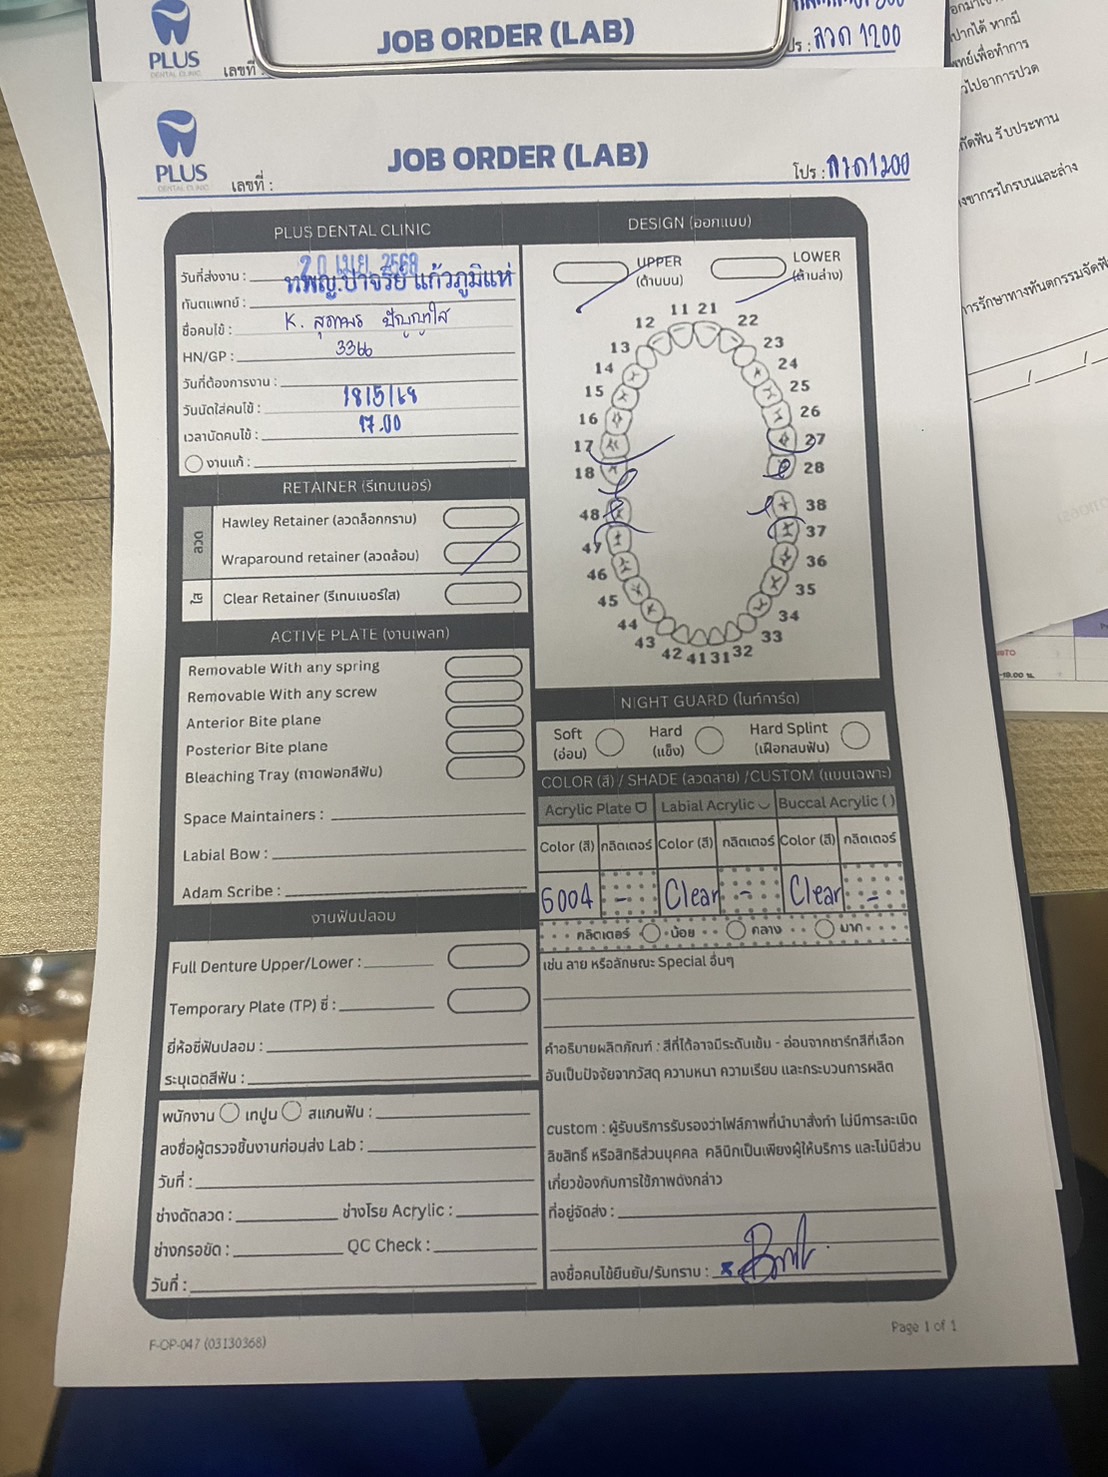 PLUS
DENTAL CLINIC
เลขที่ :
JOB ORDER (LAB)
ลวด 1200
PLUS
DENTAL CLINIC
เลขที่ :
JOB ORDER (LAB)
โปร : ลวด1200
PLUS DENTAL CLINIC
วันที่ส่งงาน : 20 เม.ย. 2568
ทันตแพทย์ : ทพญ.ปาจรีย์ แก้วภูมิแห่
ชื่อคนไข้ : K.
HN/GP : 3366
วันที่ต้องการงาน :
วันนัดใส่คนไข้ : 18/5/68
เวลานัดคนไข้ : 17.00
งานแก้ :
RETAINER (รีเทนเนอร์)
ลวด
Hawley Retainer (ลวดล็อกกราม)
Wraparound retainer (ลวดล้อม)
ใส
Clear Retainer (รีเทนเนอร์ใส)
ACTIVE PLATE (งานเพลท)
Removable With any spring
Removable With any screw
Anterior Bite plane
Posterior Bite plane
Bleaching Tray (ถาดฟอกสีฟัน)
Space Maintainers :
Labial Bow :
Adam Scribe :
งานฟันปลอม
Full Denture Upper/Lower :
Temporary Plate (TP) ซี่ :
ยี่ห้อซี่ฟันปลอม :
ระบุเฉดสีฟัน :
พนักงาน เทปูน สแกนฟัน :
ลงชื่อผู้ตรวจชิ้นงานก่อนส่ง Lab :
วันที่ :
ช่างดัดลวด : ช่างโรย Acrylic :
ช่างกรอขัด : QC Check :
วันที่ :
DESIGN (ออกแบบ)
UPPER
(ด้านบน)
LOWER
(ด้านล่าง)
11 21
12 22
13 23
14 24
15 25
16 26
17 27
18 28
48 38
47 37
46 36
45 35
44 34
43 33
42 41 31 32
NIGHT GUARD (ไนท์การ์ด)
Soft
(อ่อน)
Hard
(แข็ง)
Hard Splint
(เฝือกสบฟัน)
COLOR (สี) / SHADE (ลวดลาย) /CUSTOM (แบบเฉพาะ)
Acrylic Plate Labial Acrylic Buccal Acrylic ( )
Color (สี) กลิตเตอร์ Color (สี) กลิตเตอร์ Color (สี) กลิตเตอร์
6004 - Clear - Clear -
กลิตเตอร์ น้อย กลาง มาก
เช่น ลาย หรือลักษณะ Special อื่นๆ
คำอธิบายผลิตภัณฑ์ : สีที่ได้อาจมีระดับเข้ม - อ่อนจากชาร์ทสีที่เลือก
อันเป็นปัจจัยจากวัสดุ ความหนา ความเรียบ และกระบวนการผลิต
custom : ผู้รับบริการรับรองว่าไฟล์ภาพที่นำมาสั่งทำ ไม่มีการละเมิด
ลิขสิทธิ์ หรือสิทธิส่วนบุคคล คลินิกเป็นเพียงผู้ให้บริการ และไม่มีส่วน
เกี่ยวข้องกับการใช้ภาพดังกล่าว
ที่อยู่จัดส่ง :
ลงชื่อคนไข้ยืนยัน/รับทราบ : x
F-OP-047 (03130368)
Page 1 of 1